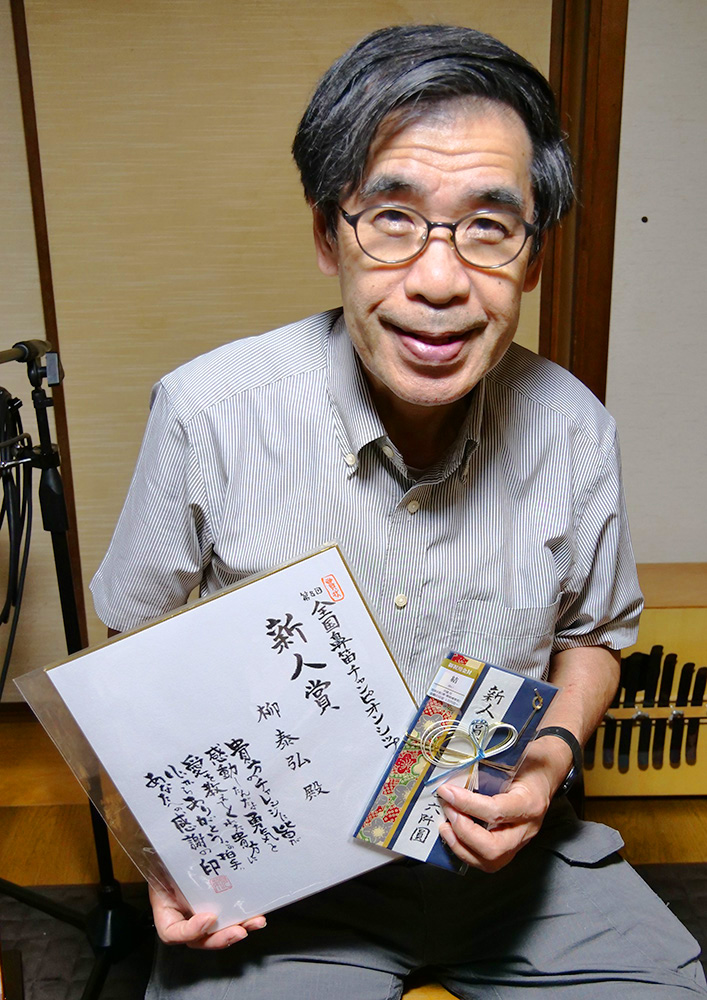 第5回
全国鼻笛チャンピオンシップ
新人賞
柳 泰弘 殿
貴方のチャレンジに皆が
感動したんだよ 勇気と
愛を教えてくれた貴方に
心からありがとうの拍手
あなたへの感謝の印
新人
結
六阡圓